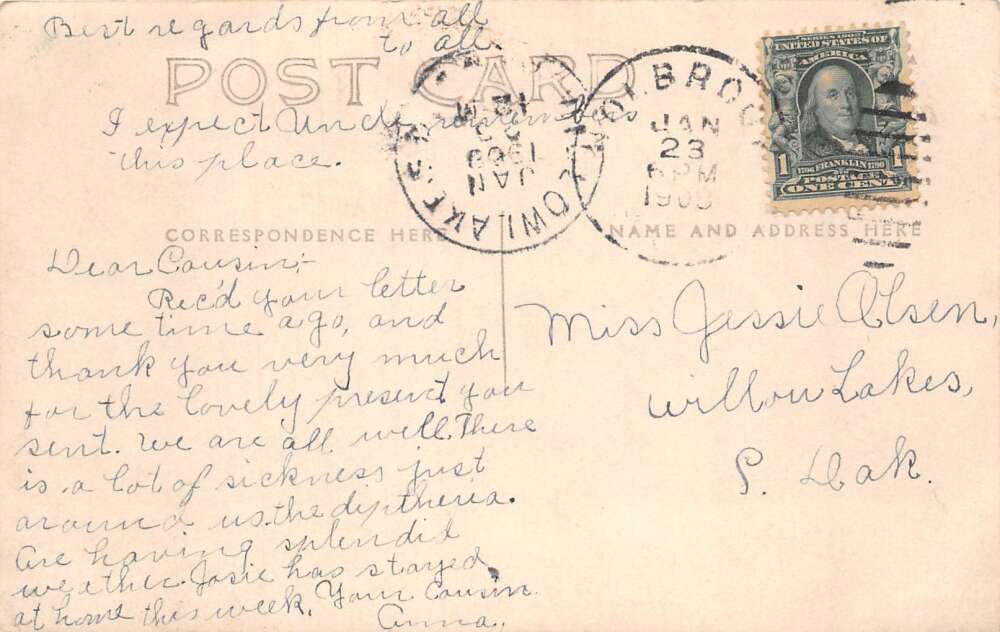 Best regards from all
to all.
POST CARD
I expect Uncle remembers
this place.
CORRESPONDENCE HERE
NAME AND ADDRESS HERE
Dear Cousin;-
Rec'd your letter
some time ago, and
thank you very much
for the lovely present you
sent. We are all well. There
is a lot of sickness just
around us. the diptheria.
Are having splendid
weather. Josie has stayed
at home this week. Your Cousin
Anna.
Miss Jessie Olsen,
Willow Lakes,
S. Dak.
JAN
23
PM
JAN
1909
SERIES 1902
UNITED STATES OF
AMERICA
1 1
1706 FRANKLIN 1790
POSTAGE
ONE CENT